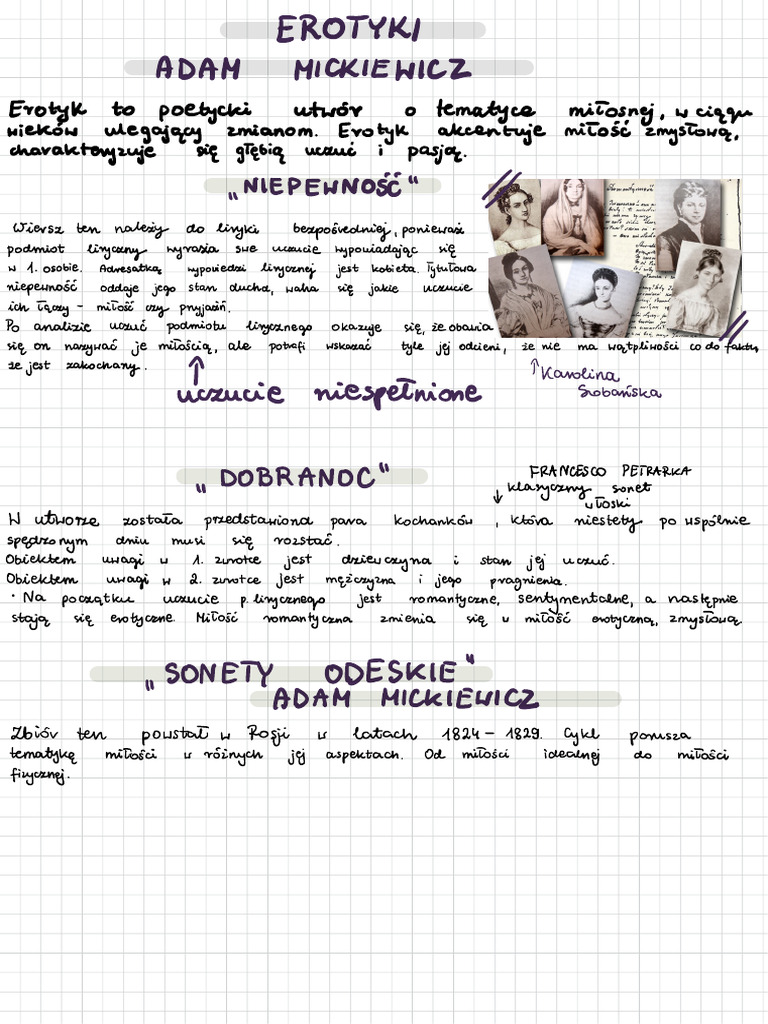 EROTYKI
ADAM MICKIEWICZ
Erotyk to poetycki utwór o tematyce miłosnej, w ciągu
wieków ulegający zmianom. Erotyk akcentuje miłość zmysłową,
charakteryzuje się głębią uczuć i pasją.
„NIEPEWNOŚĆ"
Wiersz ten należy do liryki bezpośredniej, ponieważ
podmiot liryczny wyraża swe uczucie wypowiadając się
w 1. osobie. Adresatką wypowiedzi lirycznej jest kobieta. Tytułowa
niepewność oddaje jego stan ducha, waha się jakie uczucie
ich łączy - miłość czy przyjaźń.
Po analizie uczuć podmiotu lirycznego okazuje się, że obawia
się on nazywać je miłością, ale potrafi wskazać tyle jej odcieni, że nie ma wątpliwości co do faktu,
że jest zakochany.
↑ uczucie niespełnione
↑ Karolina
Sobańska
„DOBRANOC"
FRANCESCO PETRARKA
↓ klasyczny sonet
włoski
W utworze została przedstawiona para kochanków, która niestety po wspólnie
spędzonym dniu musi się rozstać.
Obiektem uwagi w 1. zwrotce jest dziewczyna i stan jej uczuć.
Obiektem uwagi w 2. zwrotce jest mężczyzna i jego pragnienia.
• Na początku uczucie p. lirycznego jest romantyczne, sentymentalne, a następnie
stają się erotyczne. Miłość romantyczna zmienia się w miłość erotyczną, zmysłową
„SONETY ODESKIE"
ADAM MICKIEWICZ
Zbiór ten powstał w Rosji w latach 1824 - 1829. Cykl porusza
tematykę miłości w różnych jej aspektach. Od miłości idealnej do miłości
fizycznej.